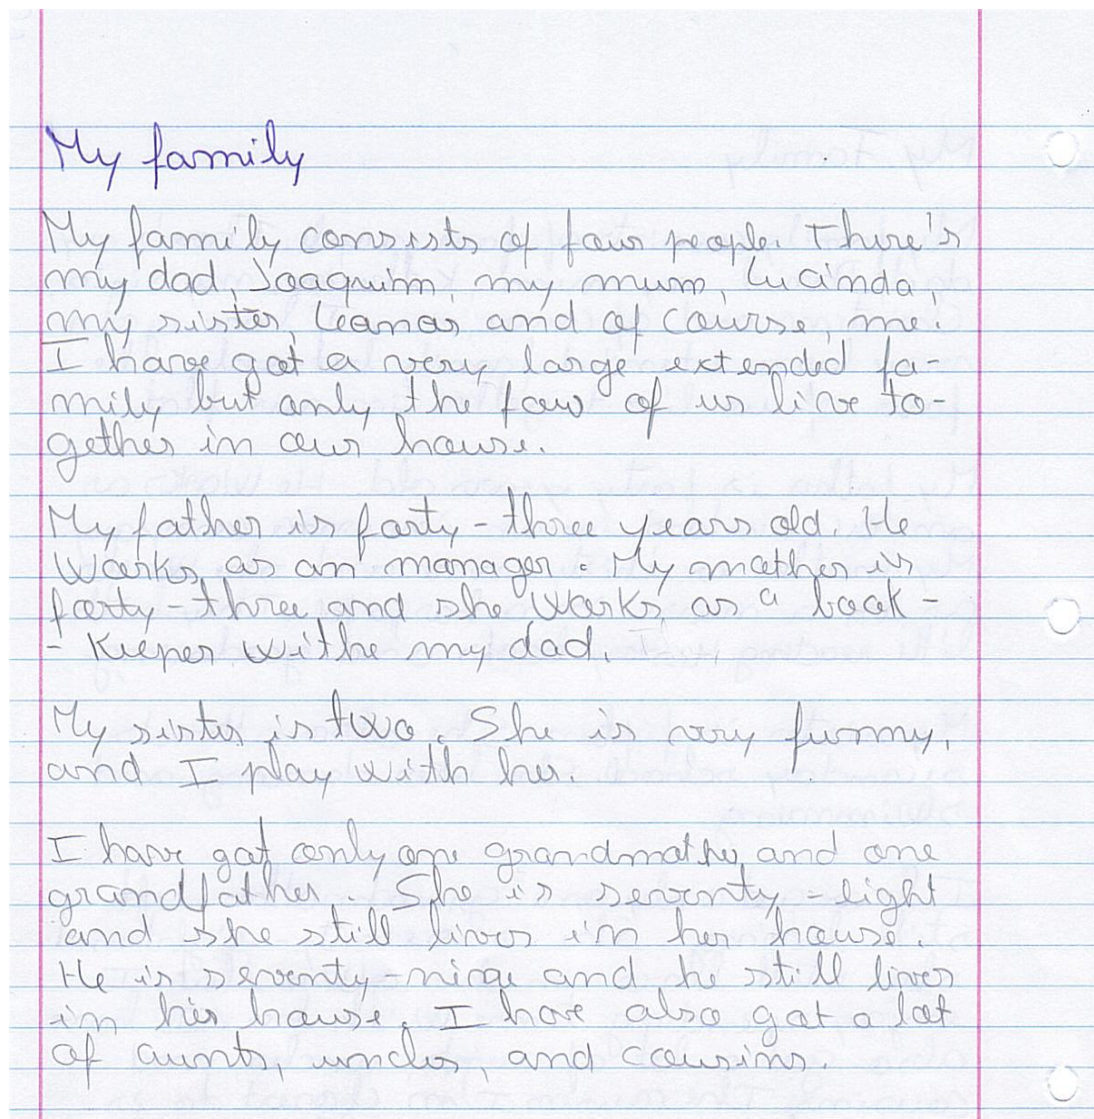 My family
My family consists of four people. There's
my dad, Joaquim, my mum, Lucinda,
my sister Leonor and of course, me.
I have got a very large extended fa-
mily but only the four of us live to-
gether in our house.
My father is forty-three years old. He
works as an manager. My mother is
forty-three and she works as a book-
- Keeper withe my dad.
My sister is two. She is very funny,
and I play with her.
I have got only one grandmother and one
grandfather. She is seventy-eight
and she still lives in her house.
He is seventy-nine and he still lives
in his house. I have also got a lot
of aunts, uncles, and cousins.